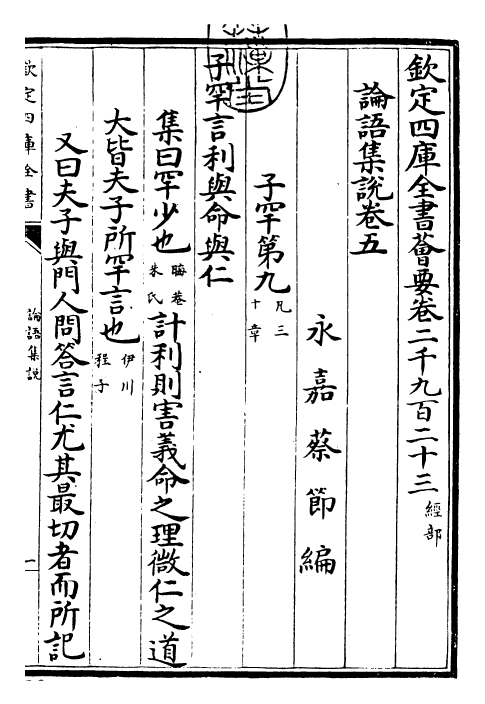 欽定四庫全書薈要卷二千九百二十三 經部
論語集說卷五
永嘉蔡節編
子罕第九 凡三十章
子罕言利與命與仁
集曰罕少也 晦菴朱氏 計利則害義命之理微仁之道
大皆夫子所罕言也 伊川程子
又曰夫子與門人問答言仁尤其最切者而所記
欽定四庫全書
論語集說
一